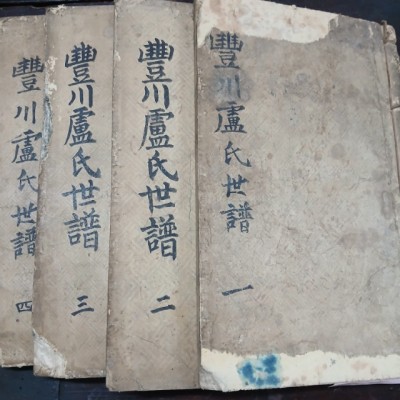 豐川盧氏世譜 一
豐川盧氏世譜 二
豐川盧氏世譜 三
豐川盧氏世譜 四